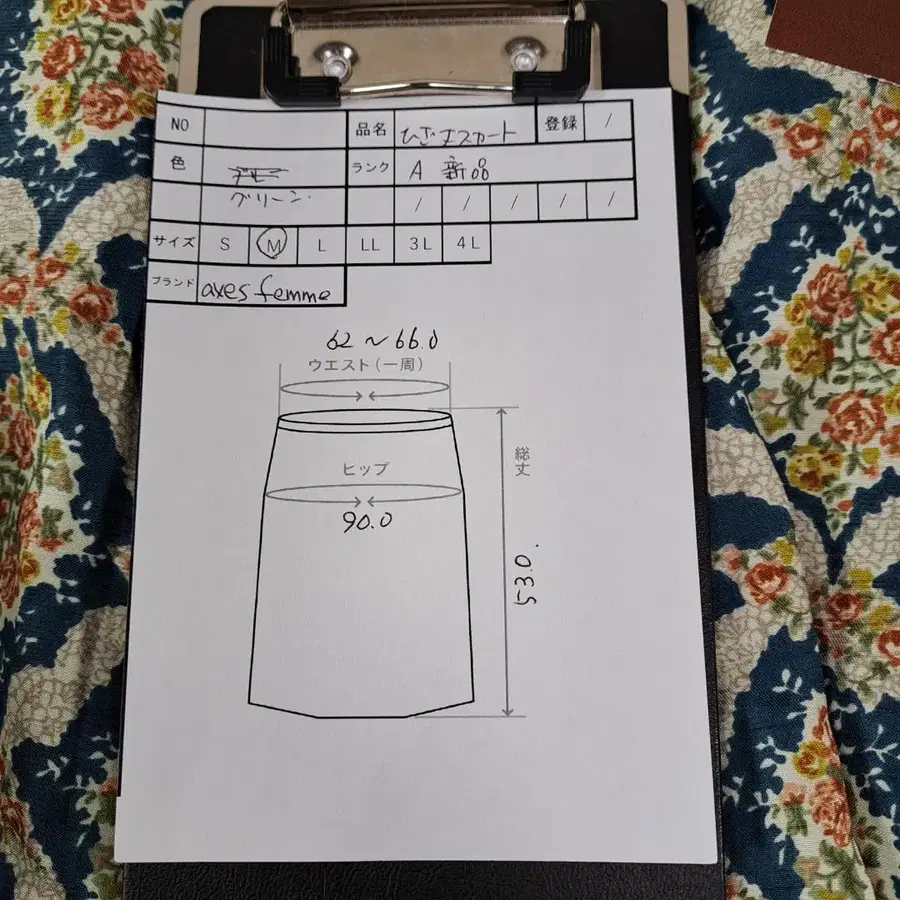 NO 品名 ひざ丈スカート 登録 /
色 ランク A 新品
グリーン. / / / / /
サイズ S M L LL 3L 4L
ブランド axes femme
62～66.0
ウエスト(一周)
総丈
ヒップ
90.0
53.0.